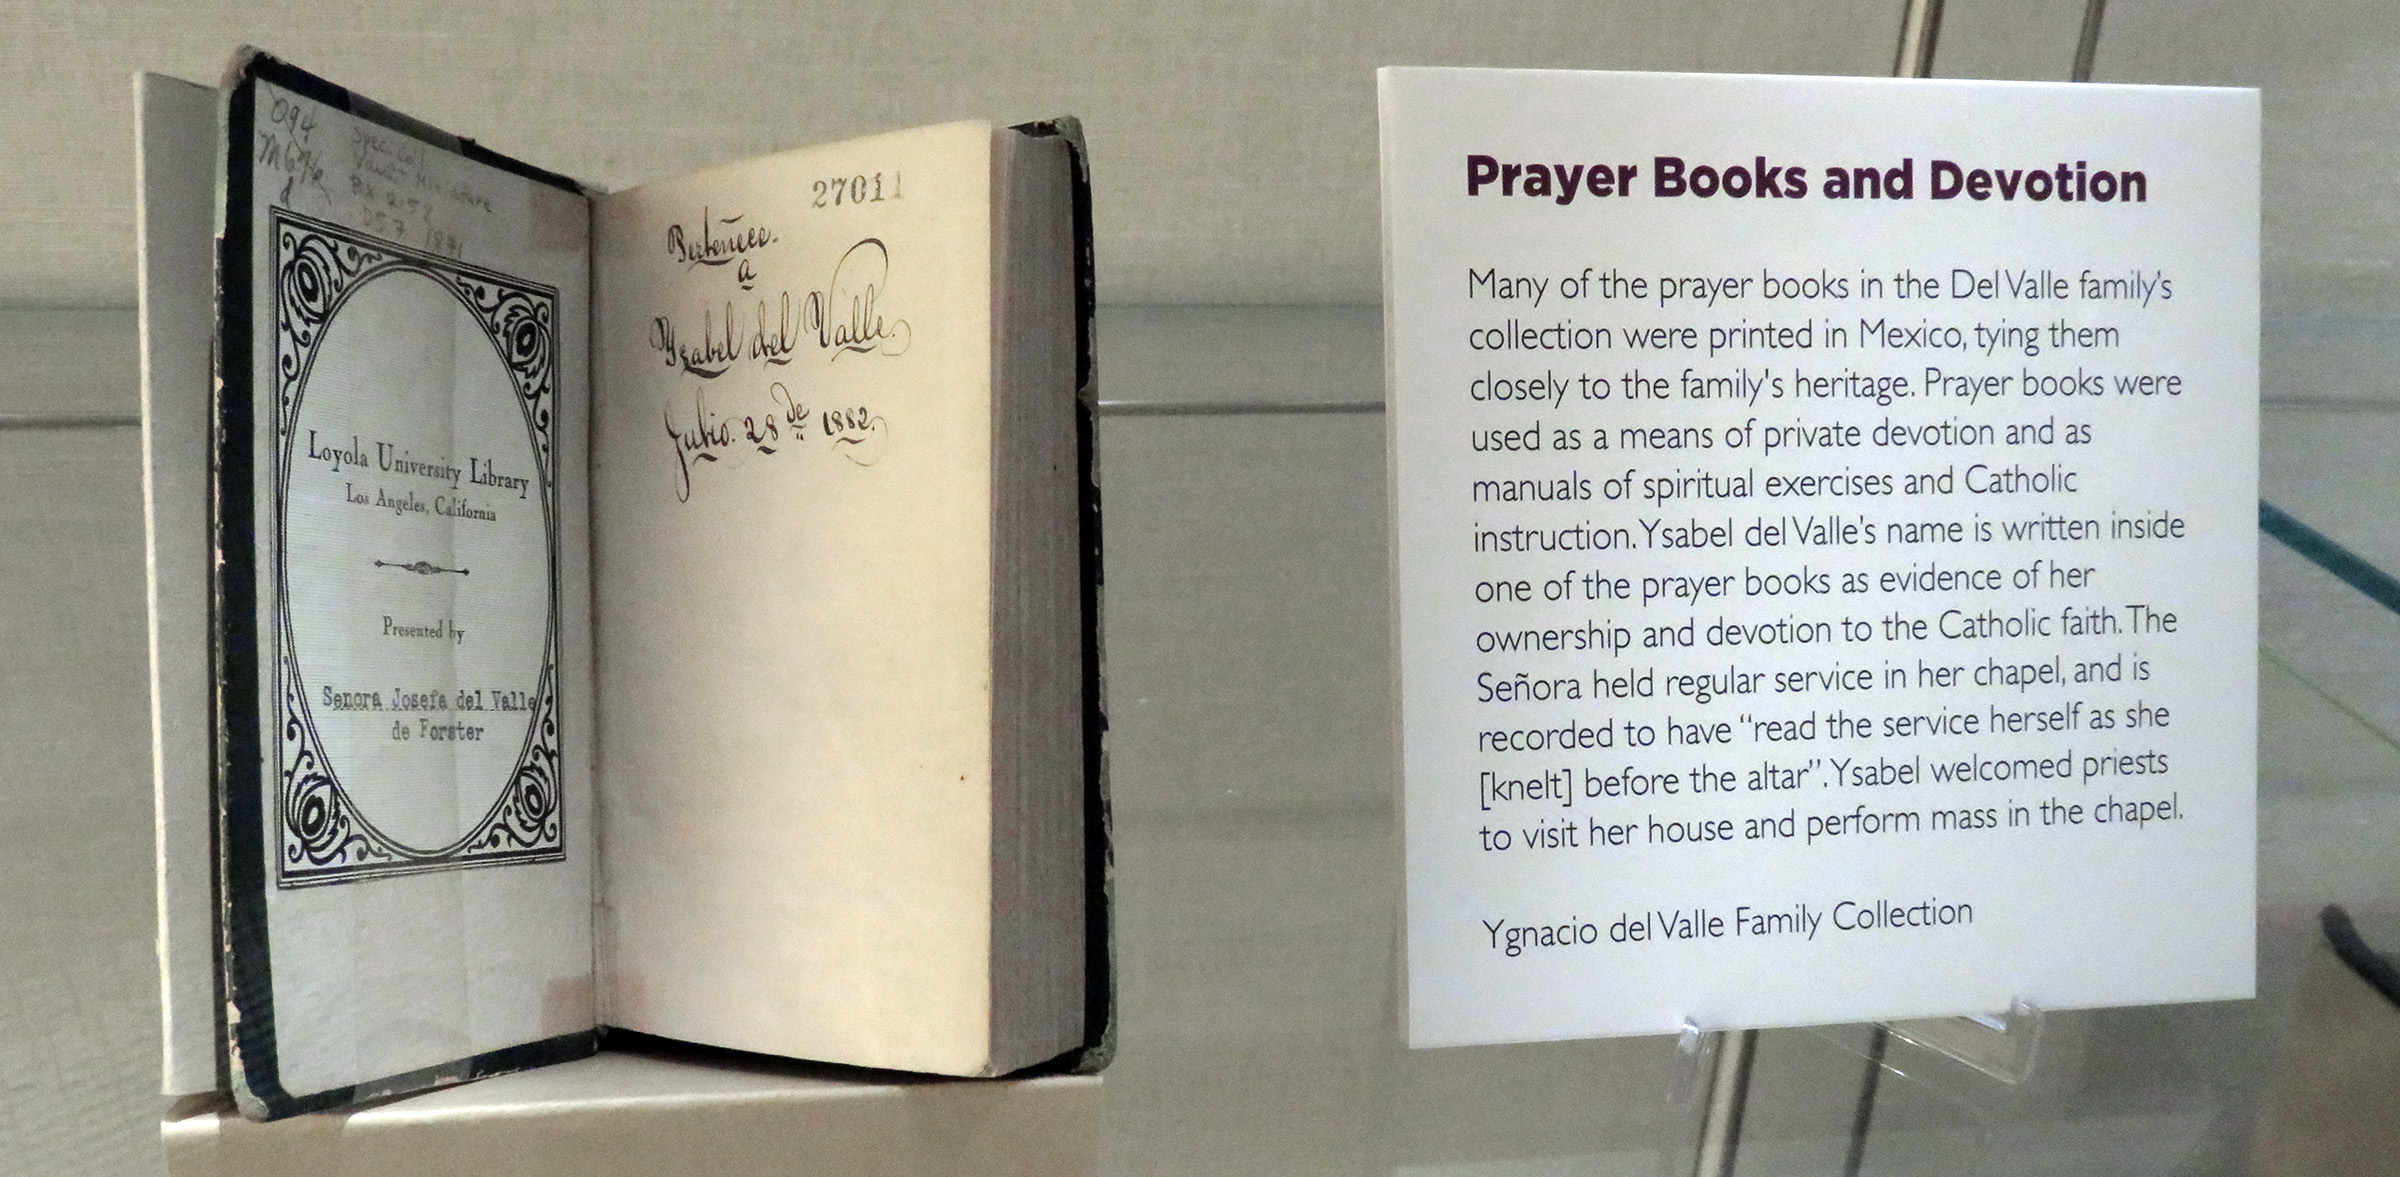 Q94
Spec. Coll.
Vault Miniature
BX 2152
D57 1871
Loyola University Library
Los Angeles, California
Presented by
Senora Josefa del Valle
de Forster
27011
Perteñece.
a
Ysabel del Valle.
Julio. 28 de 1882.
Prayer Books and Devotion
Many of the prayer books in the Del Valle family's
collection were printed in Mexico, tying them
closely to the family's heritage. Prayer books were
used as a means of private devotion and as
manuals of spiritual exercises and Catholic
instruction. Ysabel del Valle's name is written inside
one of the prayer books as evidence of her
ownership and devotion to the Catholic faith. The
Señora held regular service in her chapel, and is
recorded to have “read the service herself as she
[knelt] before the altar”. Ysabel welcomed priests
to visit her house and perform mass in the chapel.
Ygnacio del Valle Family Collection